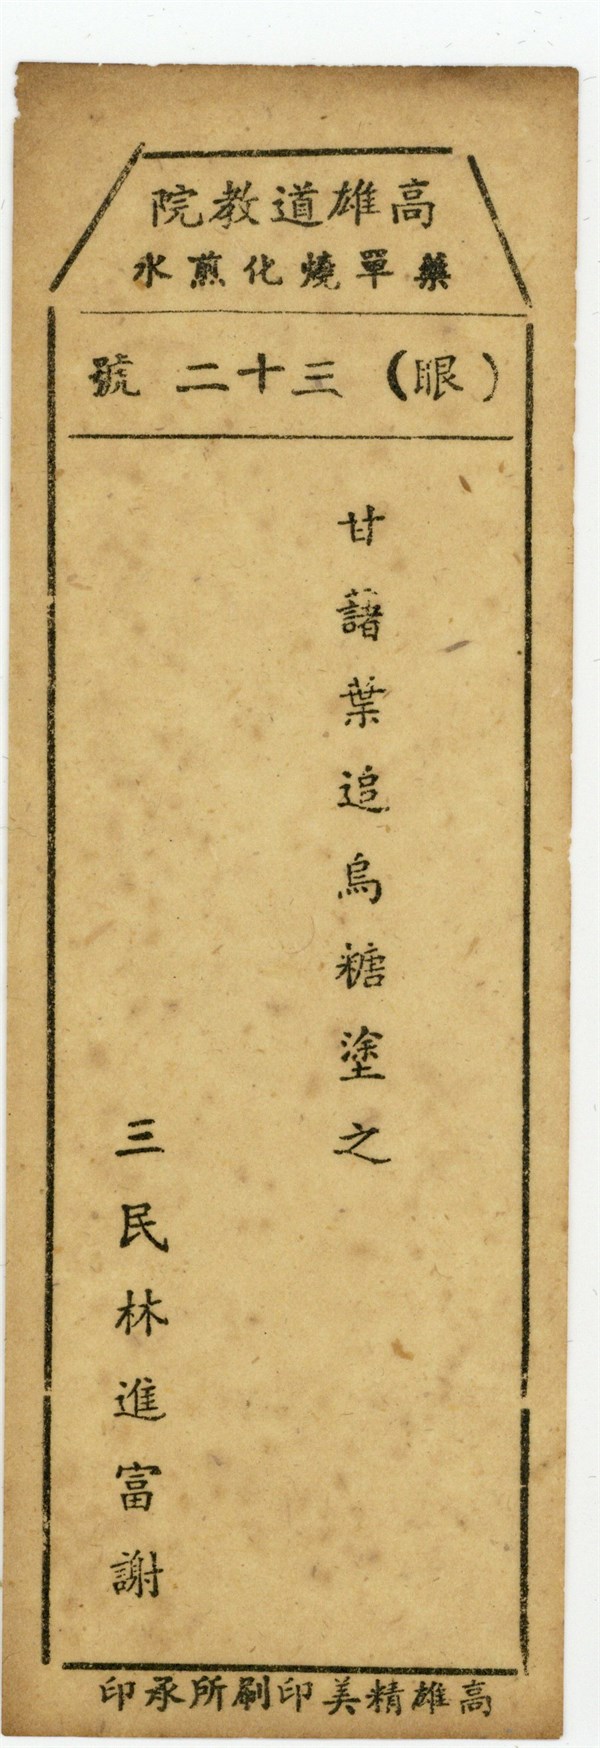 高雄道教院
藥單燒化煎水
（眼）三十二號
甘藷葉追烏糖塗之
三民林進富謝
高雄精美印刷所承印